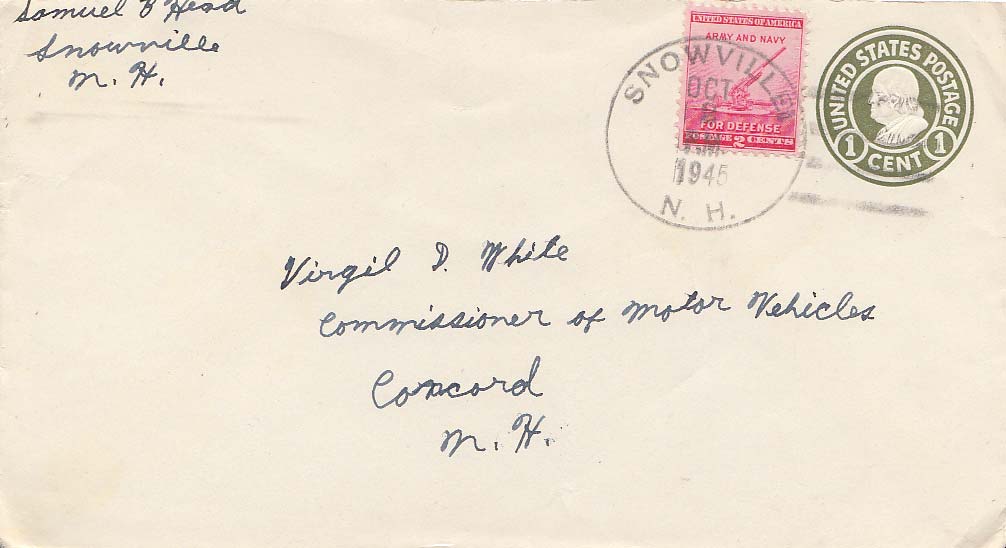 Samuel B Head
Snowville
N. H.
UNITED STATES OF AMERICA
ARMY AND NAVY
FOR DEFENSE
POSTAGE 2 CENTS
SNOWVILLE
OCT
2
1945
N. H.
UNITED STATES POSTAGE
1 CENT 1
Virgil D. White
Commissioner of Motor Vehicles
Concord
N. H.